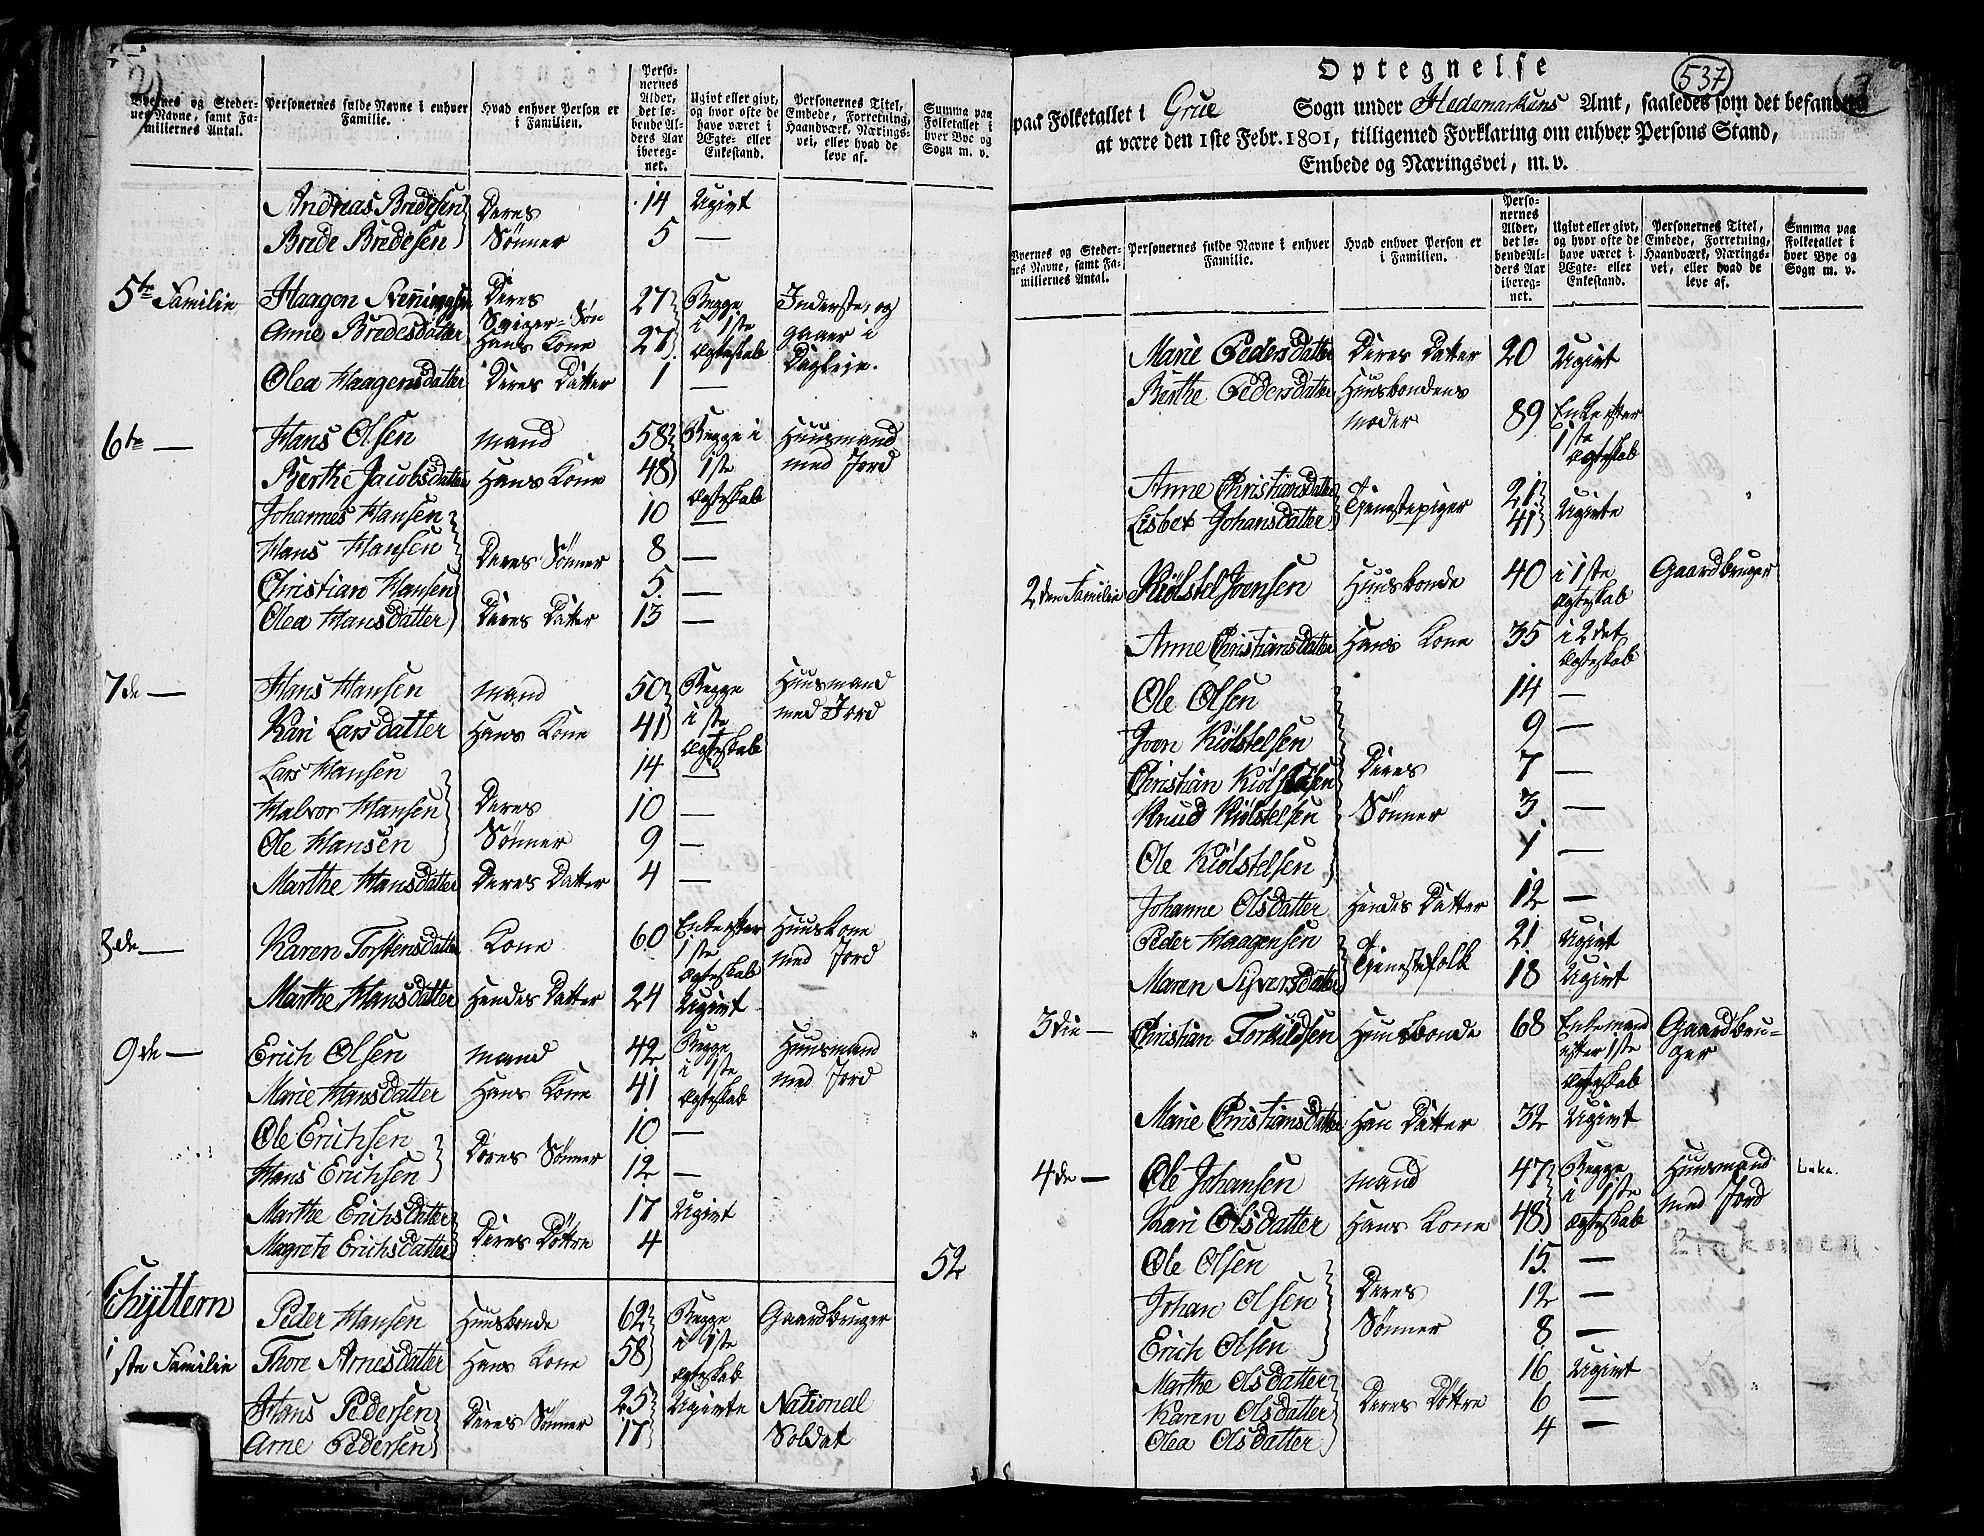 Byernes og Steder-
nes Navne, samt Fa-
miliernes Antal.
Personernes fulde Navne i enhver
Familie.
Hvad enhver Person er
i Familien.
Perso-
nernes
Alder,
det lø-
bende Al-
ders Aar
iberegn-
net.
Ugivt eller givt,
og hvor ofte de
have været i
Ægte- eller
Enkestand.
Personernes Titel,
Embede, Forretning,
Haandværk, Nærings-
vei, eller hvad de
leve af.
Summa paa
Folketallet i
hver Bye og
Sogn m. v.
Andreas Bredesen } Deres 14 Ugivt
Brede Bredesen } Sønner 5 —
5te Familie Haagen Deres Svigersøn 27 Begge Inderste, og
Anne Bredesdatter Hans Kone 27 i 1ste Ægteskab gaaer i
Olea Haagensdatter Deres Datter 1 — Dagleie.
6te — Hans Olsen Mand 58 Begge i Huusmand
Berthe Jacobsdatter Hans Kone 48 1ste Ægteskab med Jord
Johannes Hansen 10 —
Hans Hansen Deres Sønner 8 —
Christian Hansen 5 —
Olea Hansdatter Deres Datter 13 —
7de — Hans Hansen Mand 50 Begge Huusmand
Kari Larsdatter Hans Kone 41 i 1ste Ægteskab med Jord
Lars Hansen 14 —
Halvor Hansen Deres 10 —
Ole Hansen Sønner 9 —
Marthe Hansdatter Deres Datter 4 —
8de — Karen Torstensdatter Kone 60 Enke efter 1ste Ægteskab Huuskone med Jord
Marthe Hansdatter Hendes Datter 24 Ugivt
9de — Erich Olsen Mand 42 Begge Huusmand
Marie Hansdatter Hans Kone 41 i 1ste Ægteskab med Jord
Ole Erichsen Deres Sønner 10 —
Hans Erichsen 12 —
Marthe Erichsdatter Deres Døttre 17 Ugivt
Magrete Erichsdatter 4
52
Schyttern
1ste Familie Peder Hansen Huusbonde 62 Begge Gaardbruger
Thore Arnesdatter Hans Kone 58 i 1ste Ægteskab
Hans Pedersen Deres Sønner 25 Ugivte National
Arne Pedersen 17 Soldat
537
Optegnelse
paa Folketallet i Grue Sogn under Hedemarkens Amt, saaledes som det befandtes
at være den 1ste Febr. 1801, tilligemed Forklaring om enhver Persons Stand,
Embede og Næringsvei, m. v.
Byernes og Steder-
nes Navne, samt Fa-
miliernes Antal.
Personernes fulde Navne i enhver
Familie.
Hvad enhver Person er
i Familien.
Perso-
nernes
Alder,
det lø-
bende Al-
ders Aar
iberegn-
net.
Ugivt eller givt,
og hvor ofte de
have været i
Ægte- eller
Enkestand.
Personernes Titel,
Embede, Forretning,
Haandværk, Nærings-
vei, eller hvad de
leve af.
Summa paa
Folketallet i
hver Bye og
Sogn m. v.
Marie Pedersdatter Deres Datter 20 Ugivt
Berthe Pedersdatter Huusbondens Moder 89 Enke efter 1ste Ægteskab
Anne Christiansdatter Tjenestepiger 21 Ugivte
Lisbet Johansdatter 41
2den Familie Kiølstel Joensen Huusbonde 40 i 1ste Ægteskab Gaardbruger
Anne Christiansdatter Hans Kone 35 i 2det Ægteskab
Ole Olsen 14 —
Joen Kiølstelsen 9 —
Christian Kiølstelsen Deres 7 —
Knud Kiølstelsen Sønner 3 —
Ole Kiølstelsen 1 —
Johanne Olsdatter Hendes Datter 12 —
Peder Haagensen Tjenestefolk 21 Ugivt
Maren Siversdatter 18 Ugivt
3die — Christian Torkildsen Huusbonde 68 Enkemand efter 1ste Ægteskab Gaardbru-
ger
Marie Christiansdatter Han Datter 32 Ugivt
4de — Ole Johansen Mand 47 Begge Huusmand
Kari Olsdatter Hans Kone 48 i 1ste Ægteskab med Jord
Ole Olsen 15 —
Johan Olsen Deres 12 —
Erich Olsen Sønner 8 —
Marthe Olsdatter 16 Ugivt
Karen Olsdatter Deres Døttre 6 —
Olea Olsdatter 4 —